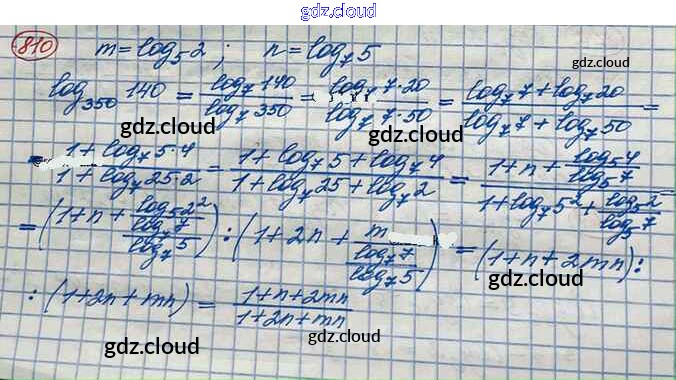 gdz.cloud
810 m = log₅2 ; n = log₇5 gdz.cloud
log₃₅₀140 = log₇140 / log₇350 = log₇7·20 / log₇7·50 = (log₇7 + log₇20) / (log₇7 + log₇50) =
gdz.cloud gdz.cloud
(1 + log₇5·4) / (1 + log₇25·2) = (1 + log₇5 + log₇4) / (1 + log₇25 + log₇2) = (1 + n + log₅4 / log₅7) / (1 + log₇5² + log₅2 / log₅7)
gdz.cloud
= (1 + n + log₅2² / (log₇7 / log₇5)) : (1 + 2n + m / (log₇7 / log₇5)) = (1 + n + 2mn) :
gdz.cloud
: (1 + 2n + mn) = (1 + n + 2mn) / (1 + 2n + mn)
gdz.cloud gdz.cloud